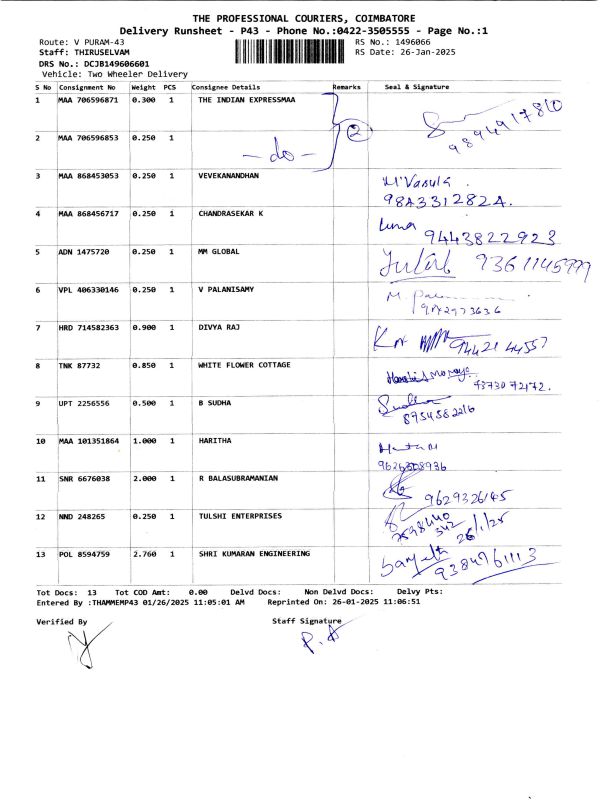 THE PROFESSIONAL COURIERS, COIMBATORE
Delivery Runsheet - P43 - Phone No.:0422-3505555 - Page No.:1
Route: V PURAM-43 RS No.: 1496066
Staff: THIRUSELVAM RS Date: 26-Jan-2025
DRS No.: DCJB149606601
Vehicle: Two Wheeler Delivery
S No Consignment No Weight PCS Consignee Details Remarks Seal & Signature
1 MAA 706596871 0.300 1 THE INDIAN EXPRESSMAA
9894917810
2 MAA 706596853 0.250 1 -do- 2
3 MAA 868453053 0.250 1 VEVEKANANDHAN M.Vasula
9843312824.
4 MAA 868456717 0.250 1 CHANDRASEKAR K Uma
9443822923
5 ADN 1475720 0.250 1 MM GLOBAL 9361145999
6 VPL 406330146 0.250 1 V PALANISAMY
7 HRD 714582363 0.900 1 DIVYA RAJ
8 TNK 87732 0.850 1 WHITE FLOWER COTTAGE
9 UPT 2256556 0.500 1 B SUDHA Sudha
8754582216
10 MAA 101351864 1.000 1 HARITHA
11 SNR 6676038 2.000 1 R BALASUBRAMANIAN
9629326145
12 NND 248265 0.250 1 TULSHI ENTERPRISES
26/1/25
13 POL 8594759 2.760 1 SHRI KUMARAN ENGINEERING
Tot Docs: 13 Tot COD Amt: 0.00 Delvd Docs: Non Delvd Docs: Delvy Pts:
Entered By :THAMMEMP43 01/26/2025 11:05:01 AM Reprinted On: 26-01-2025 11:06:51
Verified By Staff Signature